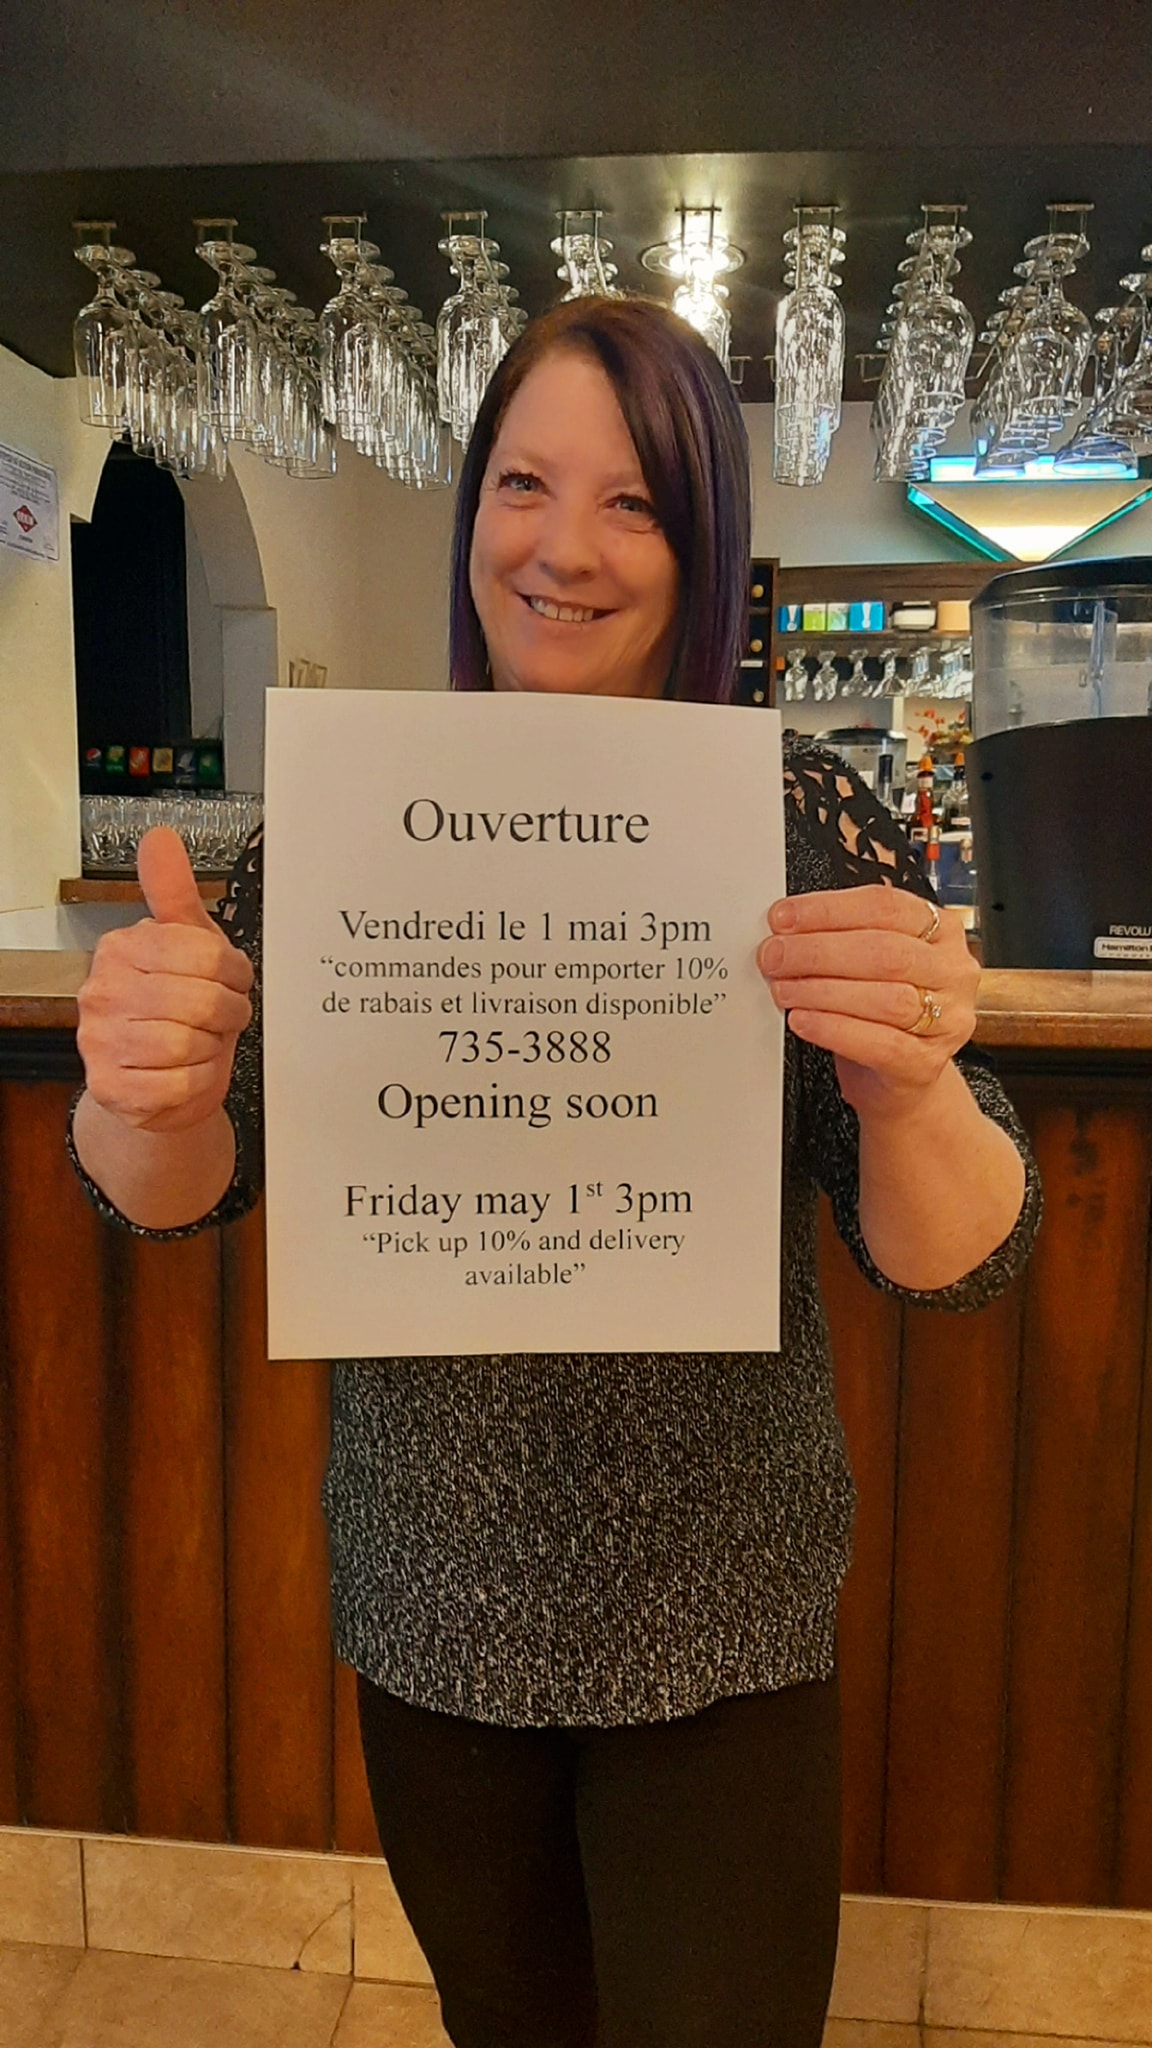 Ouverture
Vendredi le 1 mai 3pm
“commandes pour emporter 10%
de rabais et livraison disponible”
735-3888
Opening soon
Friday may 1st 3pm
“Pick up 10% and delivery
available”
REVOLU
Hamilton